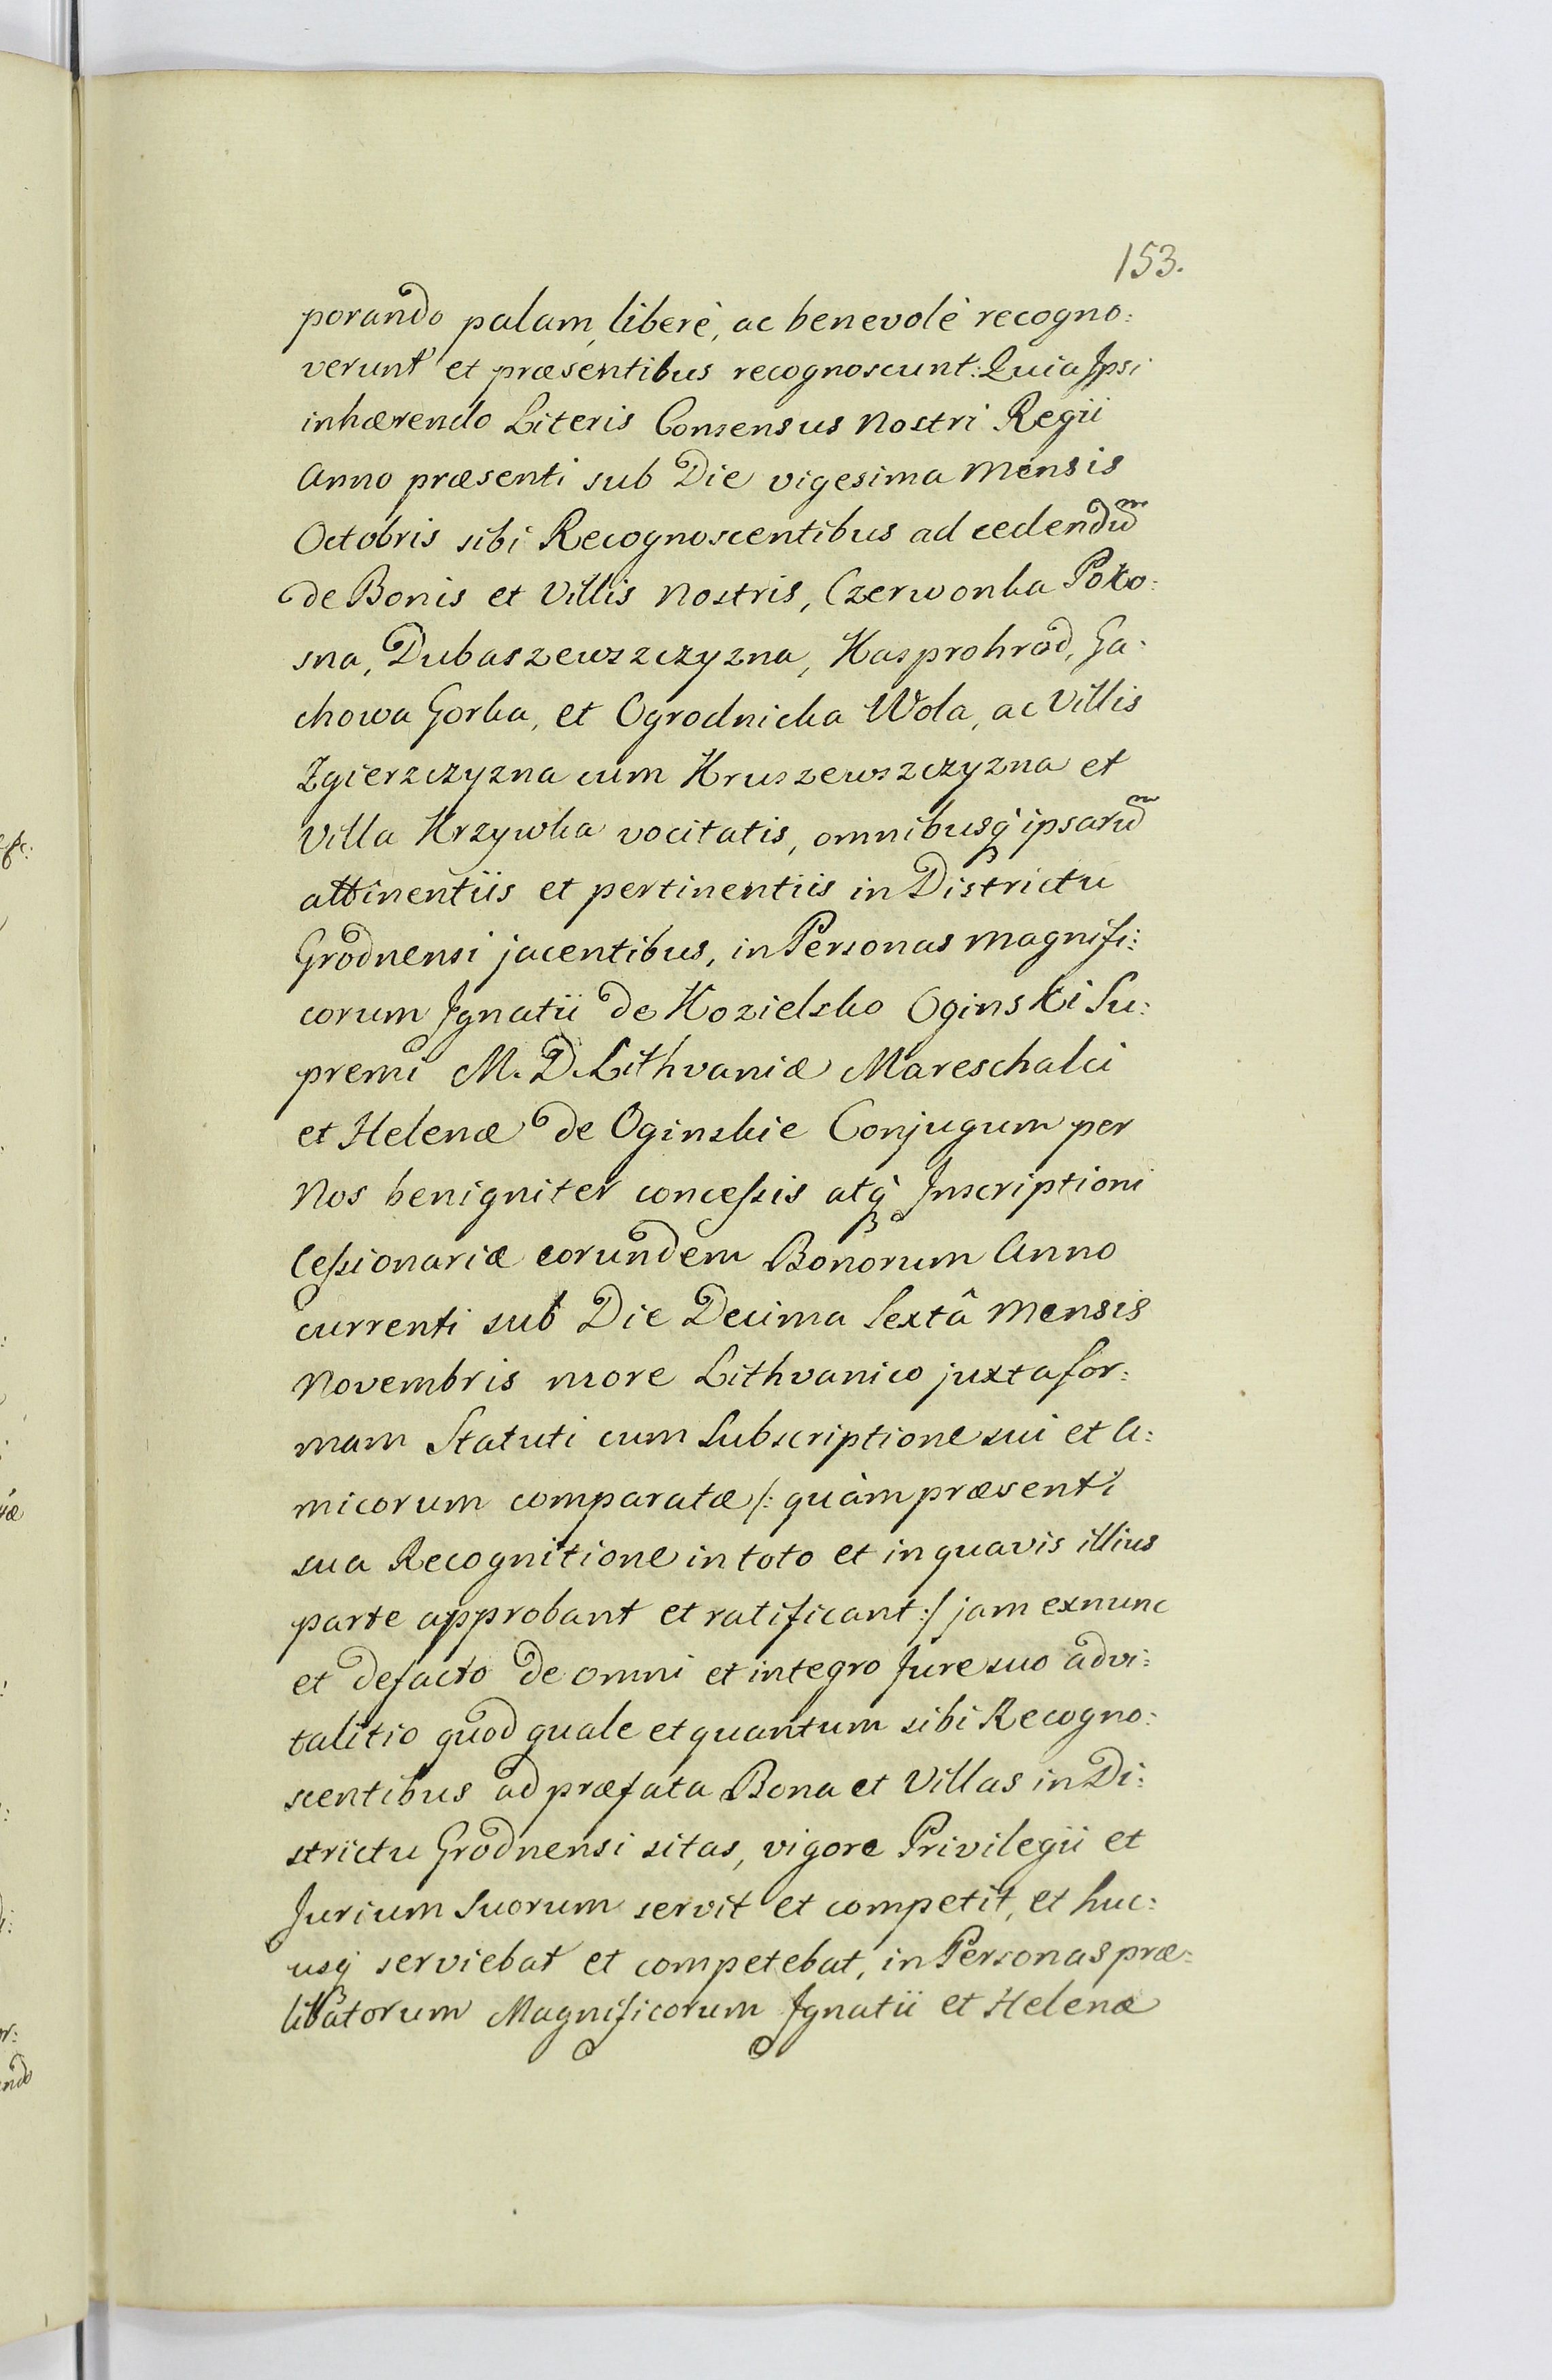 153.
porando palam, liberè, ac benevolè recogno:
verunt et præsentibus recognoscunt: Quia Ipsi
inhærendo Literis Consensus Nostri Regii
Anno præsenti sub Die vigesima Mensis
Octobris sibi Recognoscentibus ad cedendum̃
de Bonis et Villis Nostris, Czerwonka Poko:
sna, Dubaszewszczyzna, Kasprohrod, Ga:
chowa Gorka, et Ogrodnicka Wola, ac Villis
Zgierzczyzna cum Kruszewszczyzna et
Villa Krzywka vocitatis, omnibusq́ ipsarum̃
attinentiis et pertinentiis in Districtu
Grodnensi jacentibus, in Personas Magnifi:
corum Ignatii de Kozielsko Oginski Su:
premi M. D. Lithvaniæ Mareschalci
et Helenæ de Oginskie Conjugum per
Nos benigniter conceſsis atq́ Inscriptioni
Ceſsionariæ eorundem Bonorum Anno
currenti sub Die Decima Sextâ Mensis
Novembris more Lithvanico juxta for:
mam Statuti cum Subscriptione sui et A:
micorum comparatæ /: quàm præsenti
sua Recognitione in toto et in quavis illius
parte approbant et ratificant :/ jam exnunc
et defacto de omni et integro Jure suo advi:
talitio quod quale et quantum sibi Recogno:
scentibus ad præfata Bona et Villas in Di:
strictu Grodnensi sitas, vigore Privilegii et
Jurium Suorum servit et competit, et huc:
usq́ serviebat et competebat, in Personas præ:
libatorum Magnificorum Ignatii et Helenæ